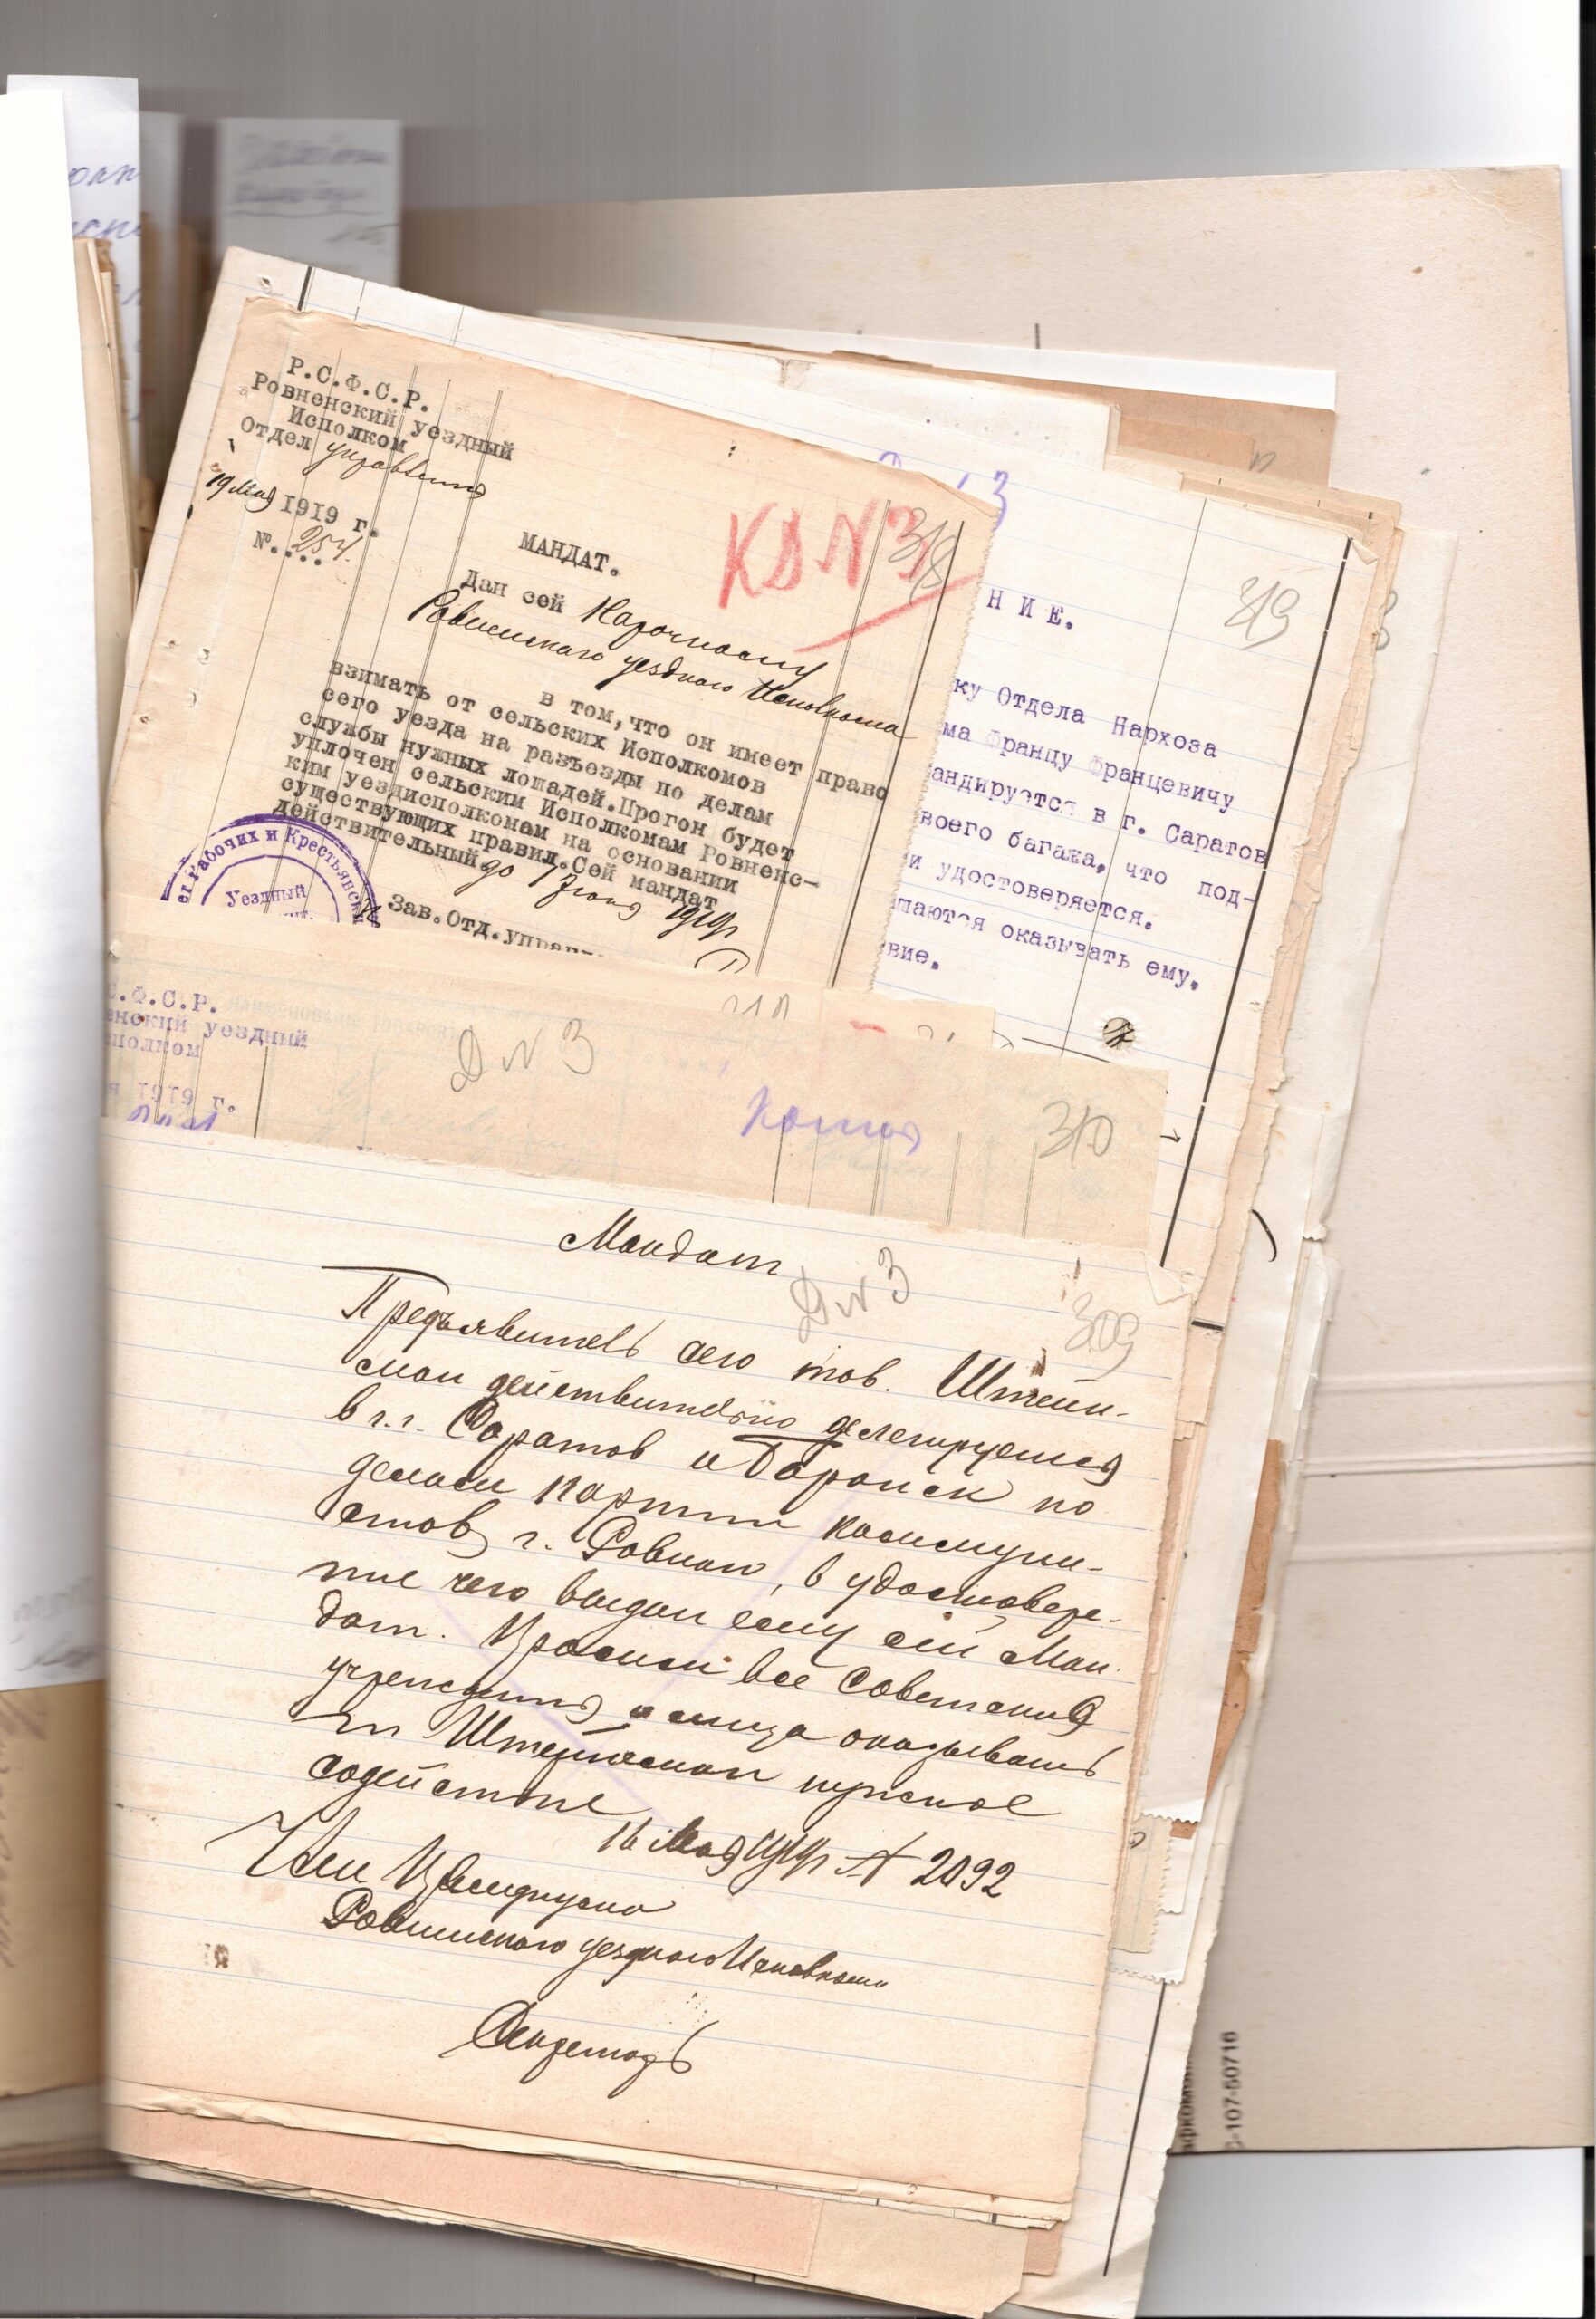 Р.С.Ф.С.Р.
Ровненский уездный
Исполком
Отдел управления
19 мая 1919 г.
№...254.
КД N 3
318
МАНДАТ.
Дан сей Нарочному
Ровненскаго уездного Исполкома
в том, что он имеет право
взимать от сельских Исполкомов
сего уезда на разъезды по делам
службы нужных лошадей. Прогон будет
уплочен сельским Исполкомам Ровненс-
ким уездисполкомам на основании
существующих правил. Сей мандат
действительный до 1 Июня 1919 г
Зав. Отд. управ
ен Рабочих и Крестьянски
Уездный
319
НИЕ.
ку Отдела Нархоза
ма Францу Францевичу
андируется в г. Саратов
воего багажа, что под-
и удостоверяется.
шаются оказывать ему,
вие.
С.Ф.С.Р.
енский уездный
сполком
я 1919 г.
Д N 3
Копия
310
Мандат
Д N 3
309
Предъявитель сего тов. Штейн-
ман действительно делегируется
в г.г. Саратов и Баронск по
делам партии коммуни-
стов г. Ровного, в удостовере-
ние чего выдан ему сей Ман-
дат. Просим все Советския
учреждения и лица оказывать
т Штейнман нужное
содействие
16 Мая 1919 г N 2092
Член Президиума
Ровненского уездного Исполкома
Секретарь
С-107-50716